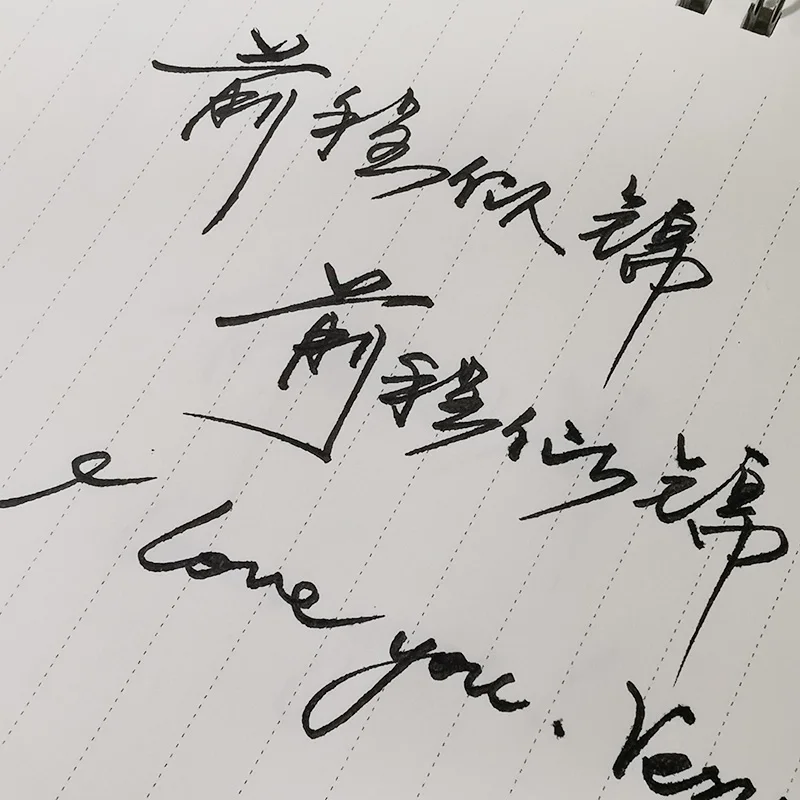 前程似锦
前程似锦
e love you. Ver